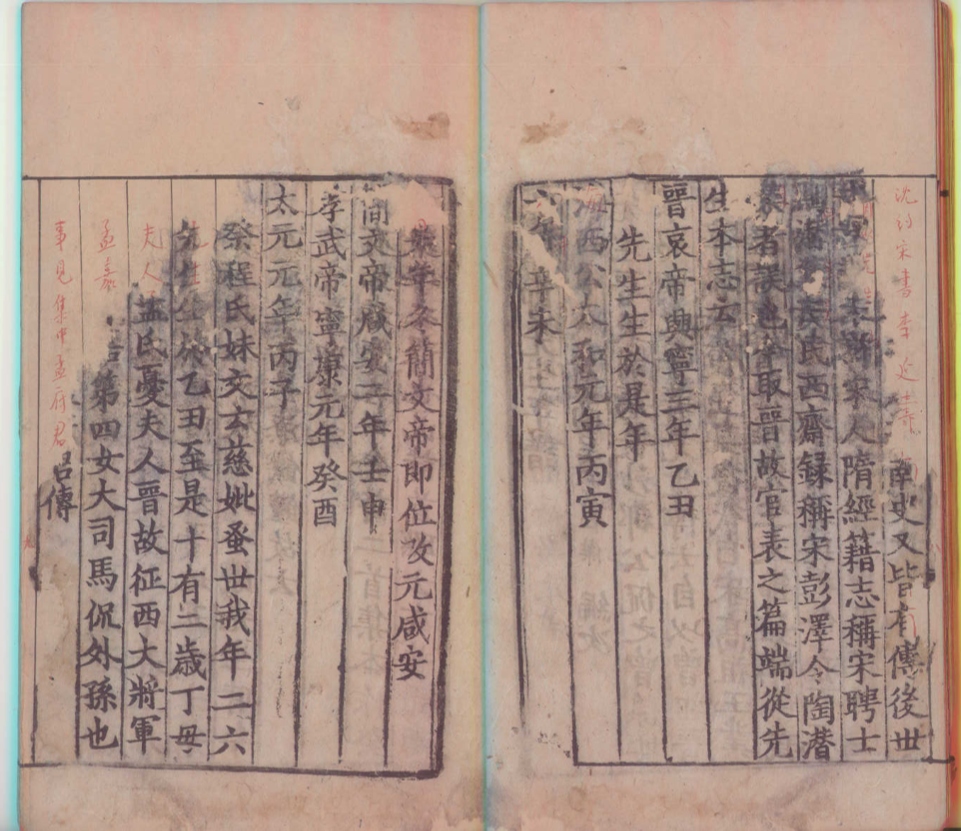 沈約宋書李延壽南史又皆有傳後世
宋人隋經籍志稱宋聘士
吳氏西齋録稱宋彭澤令陶潛
集者誤也今取晉故官表之篇端從先
生本志云
晉哀帝興寧三年乙丑
先生生於是年
海西公太和元年丙寅
六年辛未
是年冬簡文帝即位改元咸安
簡文帝咸安二年壬申
孝武帝寧康元年癸酉
太元元年丙子
祭程氏妹文云慈妣蚤世我年二六
先生生於乙丑至是十有二歲丁母
夫人孟氏憂夫人晉故征西大將軍
孟嘉第四女大司馬侃外孫也
事見集中孟府君傳